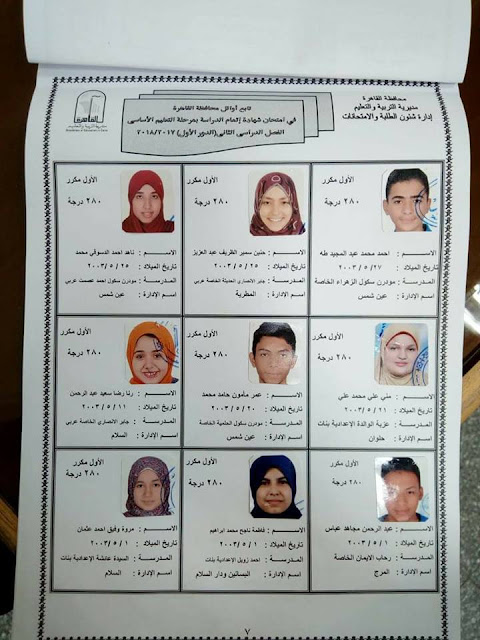 محافظة القاهرة
مديرية التربية والتعليم
إدارة شئون الطلبة والامتحانات
القاهرة
تابع أوائل محافظة القاهرة
في امتحان شهادة إتمام الدراسة بمرحلة التعليم الأساسى
الفصل الدراسى الثانى (الدور الأول) ٢٠١٨/٢٠١٧
الأول مكرر
٢٨٠ درجة
الاســـم : احمد محمد عبد المجيد طه
تاريخ الميلاد : ٢٧ / ٥ / ٢٠٠٣
المدرســة : مودرن سكول الزهراء الخاصة
اسم الإدارة : عين شمس
الأول مكرر
٢٨٠ درجة
الاســـم : حنين سمير الظريف عبد العزيز
تاريخ الميلاد : ٢٥ / ٥ / ٢٠٠٣
المدرسة : جابر الانصارى الحديثة الخاصة عربي
اسم الإدارة : المطرية
الأول مكرر
٢٨٠ درجة
الاســـم : ناهد احمد الدسوقي محمد
تاريخ الميلاد : ٢٥ / ٥ / ٢٠٠٣
المدرسة : مودرن سكول احمد عصمت عربي
اسم الإدارة : عين شمس
الأول مكرر
٢٨٠ درجة
الاســـم : مني علي محمد علي
تاريخ الميلاد : ٢١ / ٥ / ٢٠٠٣
المدرســة : عزبة الوالدة الإعدادية بنات
اسم الإدارة : حلوان
الأول مكرر
٢٨٠ درجة
الاســـم : عمر مأمون حامد محمد
تاريخ الميلاد : ٢٠ / ٥ / ٢٠٠٣
المدرسة : مودرن سكول الحلمية الخاصة
اسم الإدارة : عين شمس
الأول مكرر
٢٨٠ درجة
الاســـم : رنا رضا سعيد عبد الرحمن
تاريخ الميلاد : ١١ / ٥ / ٢٠٠٣
المدرسة : جابر الانصاري الخاصة عربي
اسم الإدارة : السلام
الأول مكرر
٢٨٠ درجة
الاســـم : عبد الرحمن مجاهد عباس
تاريخ الميلاد : ١ / ٥ / ٢٠٠٣
المدرســة : رحاب الايمان الخاصة
اسم الإدارة : المرج
الأول مكرر
٢٨٠ درجة
الاســـم : فاطمة ناجح محمد ابراهيم
تاريخ الميلاد : ١ / ٥ / ٢٠٠٣
المدرسة : احمد زويل الإعدادية بنات
اسم الإدارة : البساتين ودار السلام
الأول مكرر
٢٨٠ درجة
الاســـم : مروة وفيق احمد عثمان
تاريخ الميلاد : ١ / ٥ / ٢٠٠٣
المدرسة : السيدة عائشة الإعدادية بنات
اسم الإدارة : السلام
٧